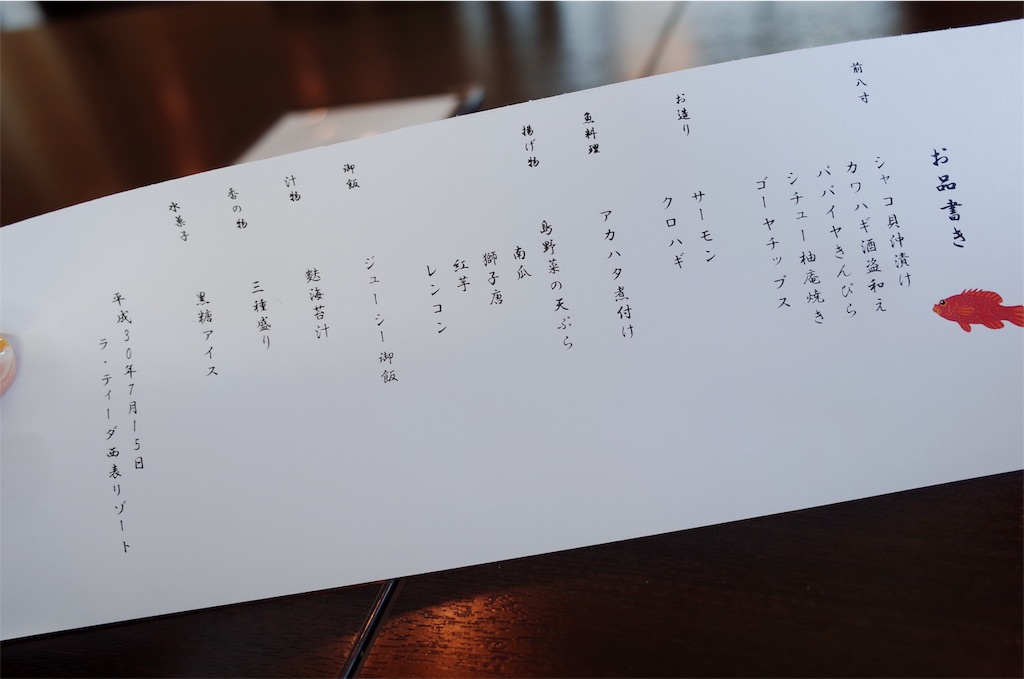 お品書き
前八寸
シャコ貝沖漬け
カワハギ酒盗和え
パパイヤきんぴら
シチュー柚庵焼き
ゴーヤチップス
お造り
サーモン
クロハギ
魚料理
アカハタ煮付け
揚げ物
島野菜の天ぷら
南瓜
獅子唐
紅芋
レンコン
御飯
ジューシー御飯
汁物
麩海苔汁
香の物
三種盛り
水菓子
黒糖アイス
平成30年7月15日
ラ・ティーダ西表リゾート